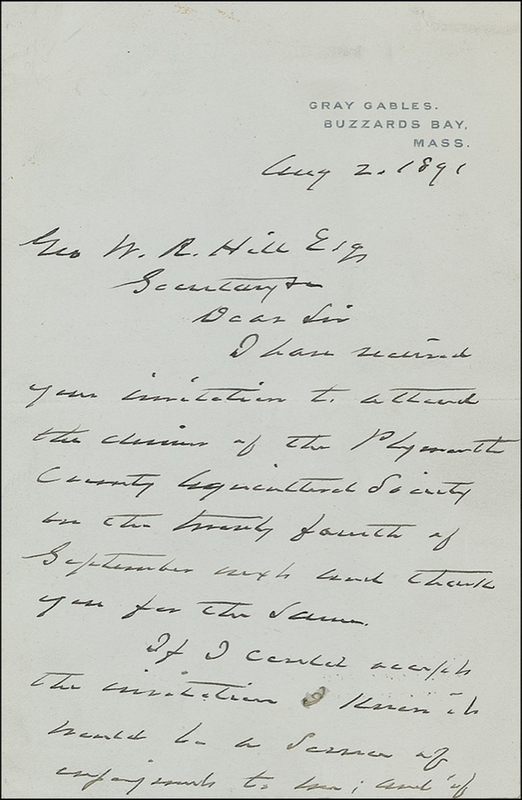 GRAY GABLES.
BUZZARDS BAY,
MASS.
Aug 2. 1891
Geo W. R. Hill Esq
Secretary &c
Dear Sir
I have received
your invitation to attend
the dinner of the Plymouth
County Agricultural Society
on the twenty fourth of
September next and thank
you for the same.
If I could accept
the invitation I know it
would be a source of
enjoyment to me; and if